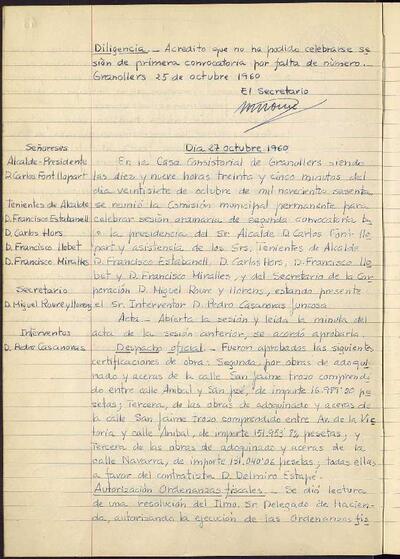 Diligencia - Acredito que no ha podido celebrarse se
sión de primera convocatoria por falta de número.
Granollers 25 de octubre 1960
El Secretario
Señoreses
Alcalde-Presidente
D. Carlos Font Llopart
Tenientes de Alcalde
D. Francisco Estabanell
D. Carlos Hors
D. Francisco Llobet
D. Francisco Miralles
Secretario
D. Miguel Roure y Llorens
Interventor
D. Pedro Casanovas
Dia 27 octubre 1960
En la Casa Consistorial de Granollers siendo
las diez y nueve horas treinta y cinco minutos del
día veintisiete de octubre de mil novecientos sesenta
se reunió la Comisión municipal permanente para
celebrar sesión ordinaria de segunda convocatoria ba
jo la presidencia del Sr. Alcalde D. Carlos Font Llo
part y asistencia de los Srs. Tenientes de Alcalde
D. Francisco Estabanell, D. Carlos Hors, D. Francisco Llo
bet y D. Francisco Miralles, y del Secretario de la Cor
poración D. Miguel Roure y Llorens, estando presente
el Sr. Interventor D. Pedro Casanovas Juncosa
Acta - Abierta la sesión y leída la minuta del
acta de la sesión anterior, se acordó aprobarla.
Despacho oficial - Fueron aprobadas las siguientes
certificaciones de obra: Segunda, por obras de adoqui
nado y aceras de la calle San Jaime trozo comprendi
do entre calle Anibal y San José, de importe pe
setas; Tercera, de las obras de adoquinado y aceras de
la calle San Jaime trozo comprendido entre Av. de la Vic
toria y calle Anibal, de importe pesetas; y
Tercera de las obras de adoquinado y aceras de la
calle Navarra, de importe 151.040'06 pesetas; todas ellas
a favor del contratista D. Delmiro Estapé.
Autorización Ordenanzas fiscales. - Se dió lectura
de una resolución del Ilmo. Sr. Delegado de Hacien
da, autorizando la ejecución de las Ordenanzas fis